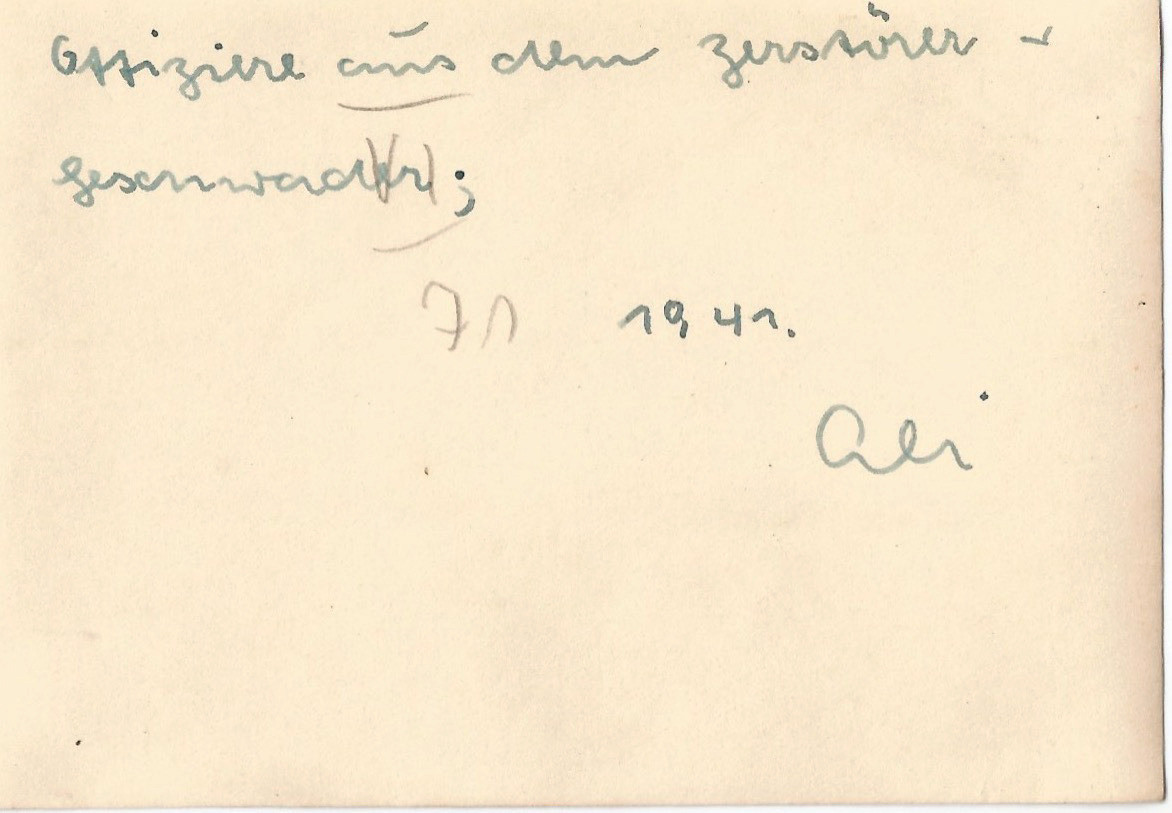 Offiziere aus dem Zerstörer-
geschwader;
71 1941.
Ali